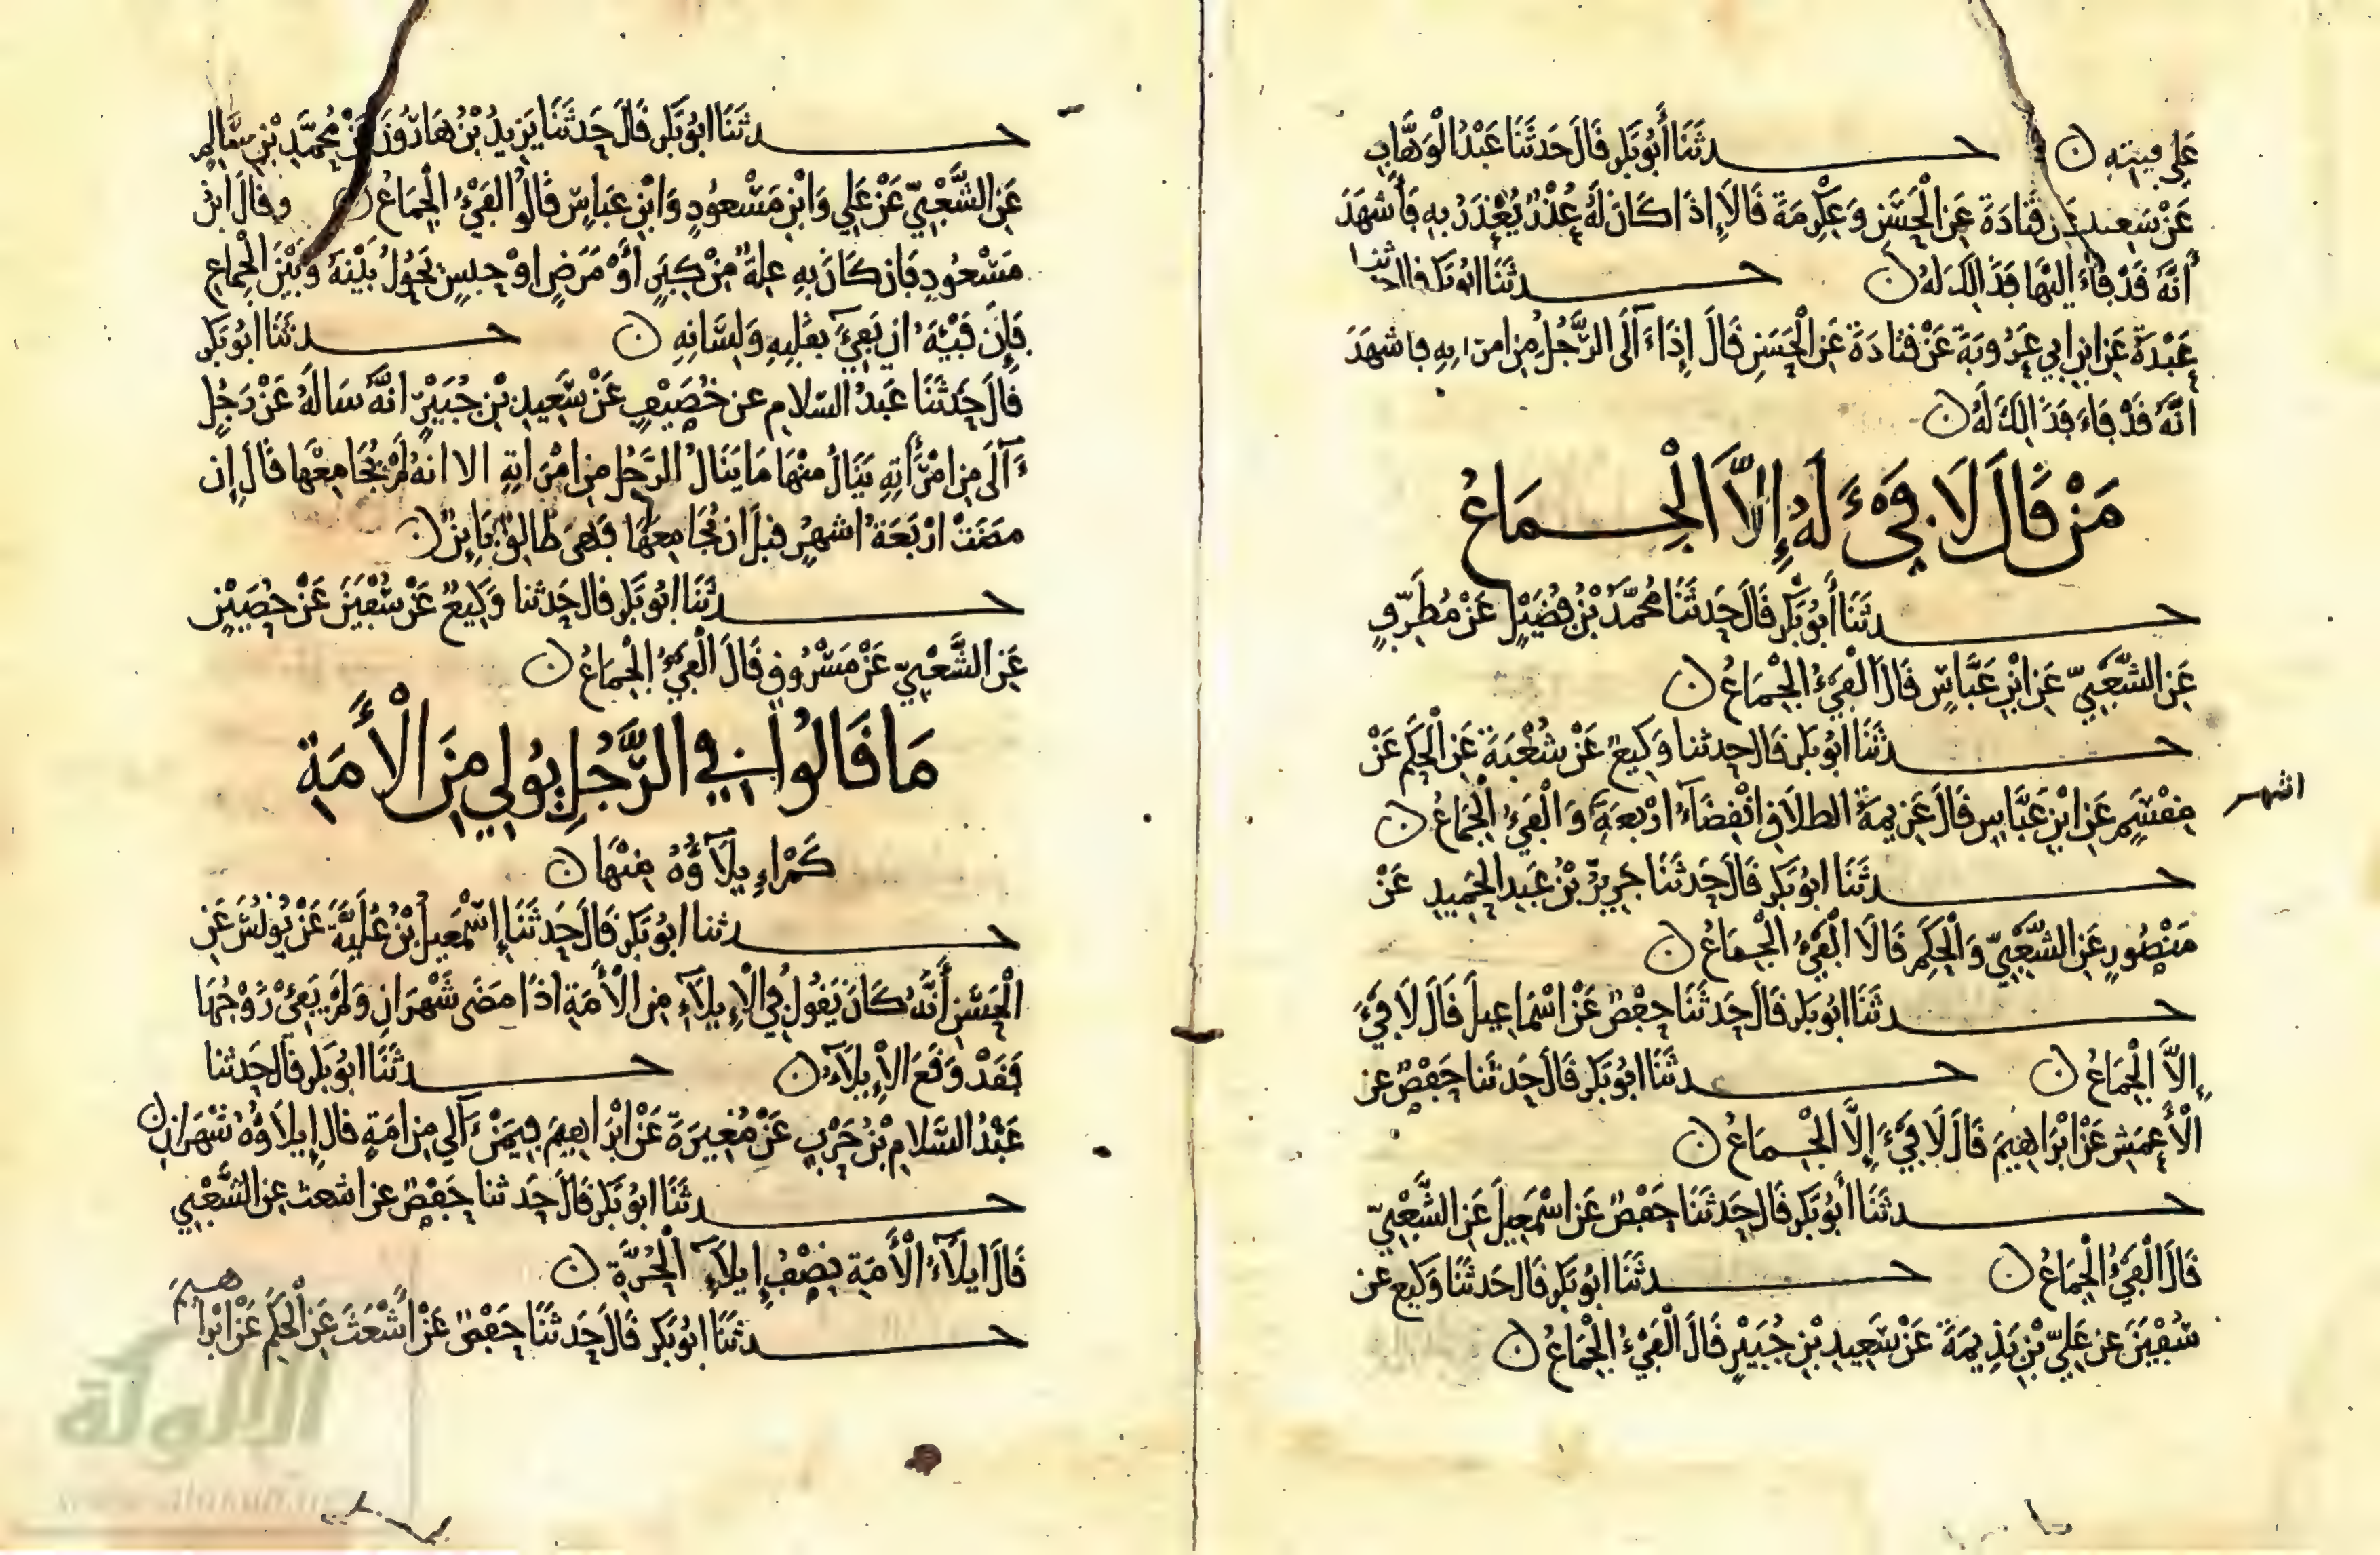 عَلَى فَيْئِهِ ن حـــدثَنَا أَبُو بَكْرٍ قَالَ حَدَثَنَا عَبْدُ الْوَهَّابِ
عَنْ سَعِيدٍ عَن قَتَادَةَ عَنِ الْحَسَنِ وَعِكْرِمَةَ قَالَا إِذَا كَانَ لَهُ عُذْرٌ يُعْذَرُ بِهِ فَأَشْهَدَ
أَنَّهُ قَدْ فَاءَ إِلَيْهَا فَذَالِكَ لَهُ ن حـــدثَنَا ابُو بَكْرٍ قال حدثنا
عَبْدَةُ عَنِ ابْنِ ابِي عَرُوبَةَ عَنْ قَتَادَةَ عَنِ الْحَسَنِ قَالَ إِذَا ءَالَى الرَّجُلُ مِنِ امْرَاتِهِ فَاشهَدَ
انَّهُ قَدْ فَاءَ فَذَالِكَ لَهُ ن
مَنْ قَالَ لَا فَيْءَ لَهُ إِلاَّ الْجِـمَاعُ
حـــدثَنَا أَبُو بَكْرٍ قَالَ حَدَثَنَا مُحَمَّدُ بْنُ فُضَيْلٍ عَنْ مُطَرِّفٍ
عَنِ الشَّعْبِيِّ عَنِ ابْنِ عَبَّاسٍ قَالَ الْفَيْءُ الْجِمَاعُ ن
حـــدثَنَا ابُو بَكْرٍ قَالَ حدثنا وَكِيعٌ عَنْ شُعْبَةَ عَنِ الْحَكَمِ عَنْ
مِقْسَمٍ عَنِ ابْنِ عَبَّاسٍ قَالَ عَزِيمَةُ الطلَاقِ انْقِضَاءُ ارْبَعَةِ وَالْفَيْءُ الْجِمَاعُ ن
اشهر
حـــدثَنَا ابُو بَكْرٍ قَالَ حَدَثَنَا جَرِيرُ بْنُ عَبِدِ الْحَمِيدِ عَنْ
مَنْصُورٍ عَنِ الشَّعْبِيِّ وَالْحَكَمِ قَالَا الْفَيْءُ الْجِمَاعُ ن
حـــدثَنَا ابُو بَكْرٍ قَالَ حَدَثَنَا حَفْصٌ عَنْ اسْمَاعِيلَ قَالَ لَا فَيْءَ
إِلاَّ الْجِمَاعُ ن حـــدثَنَا ابُو بَكْرٍ قَالَ حَدثَنا حَفْصٌ عَنِ
الْأَعمَشِ عَنْ ابْرَاهِيمَ قَالَ لَا فَيْءَ إِلَّا الْجِـمَاعُ ن
حـــدثَنَا أَبُو بَكْرٍ قَالَ حَدَثَنَا حَفْصٌ عَنِ اسْمَعِيلَ عَنِ الشَّعْبِيِّ
قَالَ الْفَيْءُ الْجِمَاعُ ن حـــدثَنَا ابُو بَكْرٍ قَالَ حَدثَنَا وَكِيع عَن
سُفْيَنَ عَن عَلِيِّ بْنِ بَذِيمَةَ عَنْ سَعِيدِ بْنِ جُبَيْرٍ قَالَ الْفَيْءُ الْجِمَاعُ ن
حـــدثَنَا ابُو بَكْرٍ قَالَ حَدثَنَا يَزِيدُ بْنُ هَارُونَ عَنْ مُحَمَّدِ بْنِ سَالِمٍ
عَنِ الشَّعْبِيِّ عَنْ عَلِي وَابْنِ مَسْعُودٍ وَابْنِ عَبَاسٍ قَالُوا الفَيْءُ الْجِمَاعُ ن وقَالَ ابْنُ
مَسْعُودٍ فَإن كَانَ بِهِ عِلةٌ مِنْ كِبَرٍ أَوْ مَرَضٍ اوْ حَبسٍ يَحُولُ بَيْنَهُ وَبَيْنَ الْجِمَاعِ
فَإِن فَيْئَهُ ان يَفِيءَ بِقَلْبِهِ وَلِسَانِهِ ن حـــدثَنَا ابُو بَكْرٍ
قَالَ حَدَثَنَا عَبدُ السّلَامِ عن خُصَيْفٍ عَنْ سَعِيدِ بْنِ جُبَيْرٍ انَّهُ سَالَهُ عَنْ رَجُلٍ
ءَالَى مِنِ امْرَأَتِهِ يَنَالُ مِنْهَا مَا يَنَالُ الرَّجُلُ مِنِ امْرَاتِهِ الا انهُ لَمْ يُجَامِعْهَا قَالَ إن
مَضَتْ ارْبَعَةُ اشهُرٍ قَبلَ ان يُجَامِعَهَا فَهْيَ طَالِقٌ بَايِنٌ ن
حـــدثَنَا ابُو بَكْرٍ قال حَدثنا وَكِيعٌ عَنْ سُفْيَنَ عَنْ حُصَيْنٍ
عَنِ الشَّعْبِيِّ عَنْ مَسْرُوقٍ قَالَ الْفَيْءُ الْجِمَاعُ ن
مَا قَالُوا فِي الرَّجُلِ يُولِي مِنَ الْأَمَةِ
كَمْ إِيلَآؤُهُ مِنْهَا ن
حـــدثنا ابُو بَكْرٍ قَالَ حَدَثَنَا إِسْمَعِيلُ بْنُ عُلَيَّةَ عَنْ يُونُسَ عَنِ
الْحَسَنِ أَنَّهُ كَانَ يَقُولُ فِي الْإِيلَآءِ مِنِ الْأَمَةِ اذَا مَضَى شَهْرَانِ وَلَمْ يَفِيْ زَوْجُهَا
فَقَدْ وَقَعَ الْإِيلَآءُ ن حـــدثَنَا ابُو بَكْرٍ قَالَ حَدثنا
عَبْدُ السَّلَامِ بْنُ حَرْبٍ عَنْ مُغِيرَةَ عَنْ ابْرَاهِيمَ فِيمَنْ ءَالَى مِنِ امَةٍ قَالَ إِيلَآؤُهُ شَهْرَانِ ن
حـــدثَنَا ابُو بَكْرٍ قَالَ حَدثنا حَفْصٌ عن اشعث عَنِ الشَّعْبِي
قَالَ ايلَآءُ الْأَمَةِ نِصْفُ إِيلَآءِ الْحُرَّةِ ن
حـــدثَنَا ابُو بَكْرٍ قَالَ حَدثَنَا حَفْصٌ عَنْ أَشْعَثَ عَنِ الْحَكَمِ عَنْ ابْرَاهِيمَ
الألوكة